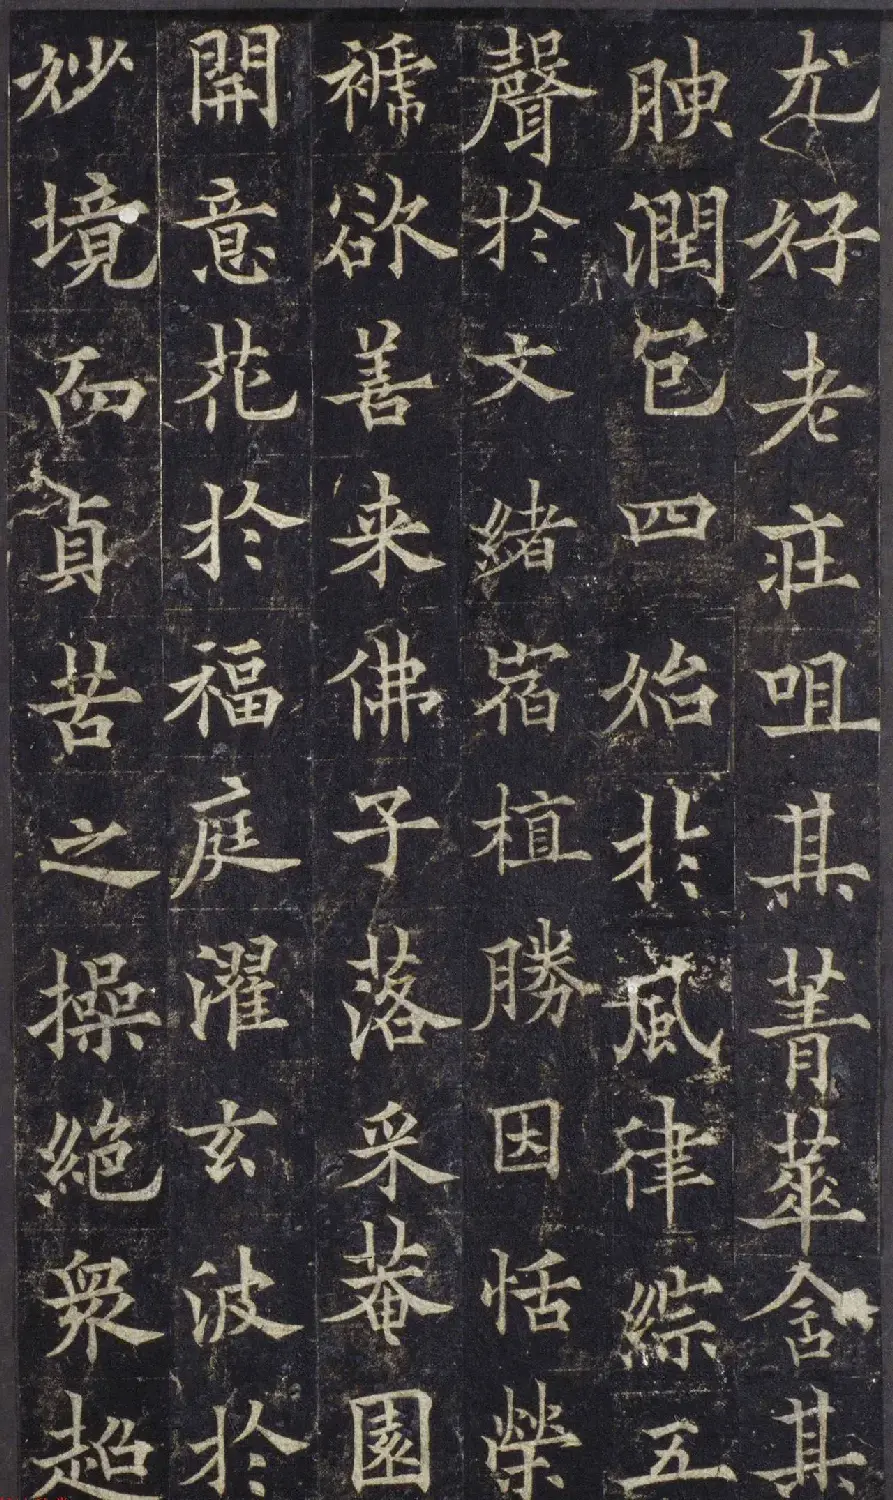 尤好老莊咀其菁華含其
腴潤包四始於風律綜五
聲於文緒宿植勝因恬榮
褫欲善来佛子落采菴園
開意花於福庭濯玄波於
妙境而貞苦之操絶衆超